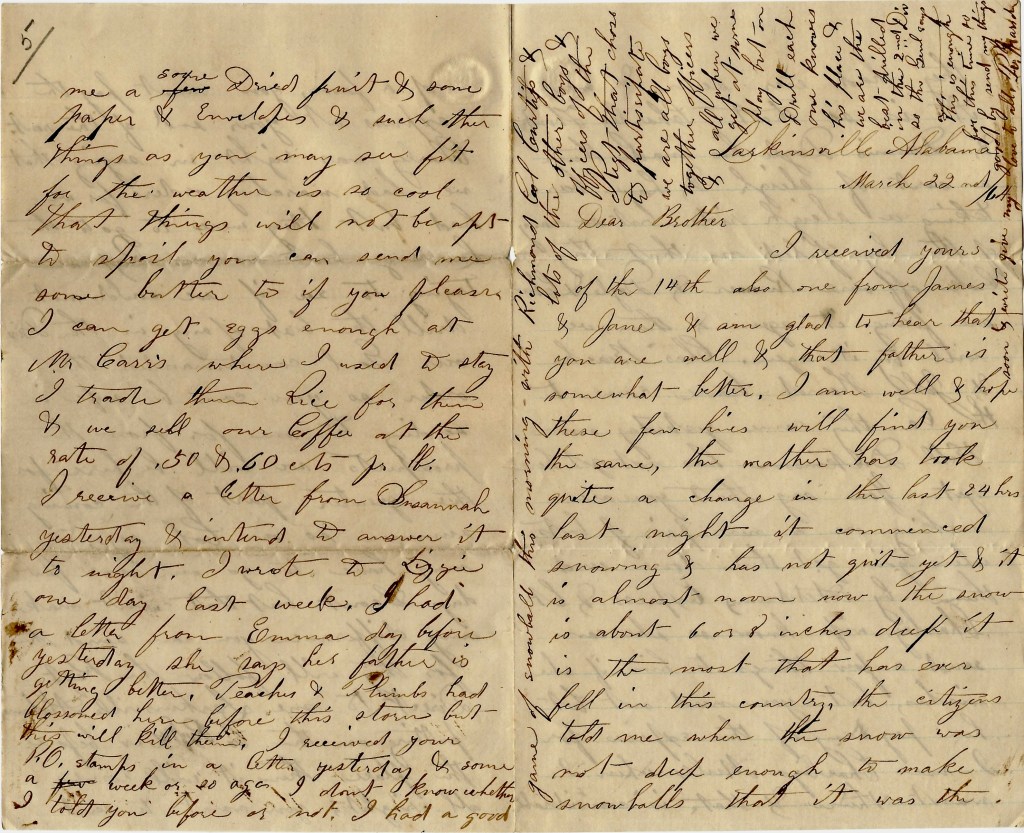 Larkinsville Alabama
March 22nd
Dear Brother
I received yours
of the 14th also one from James
& Jane & am glad to hear that
you are well & that father is
somewhat better. I am well & hope
these few lines will find you
the same, the wather has took
quite a change in the last 24 hrs
last night it commenced
snowing & has not quit yet & it
is almost noon now the snow
is about 6 or 8 inches deep it
is the most that has ever
fell in this country, the citizens
told me when the snow was
not deep enough to make
snowballs that it was the.
5
me a some few Dried fruit & some
paper & Envelopes & such other
things as you may see fit
for the weather is so cool
that things will not be apt
to spoil you can send me
some butter to if you please
I can get eggs enough at
Mr Carris where I used to stay
I trade them Rice for them
& we sell our Coffee at the
rate of .50 & .60 cts pr lb.
I receive a letter from Susannah
yesterday & intend to answer it
to night. I wrote to Lizzie
one day last week. I had
a letter from Emma day before
yesterday she says her father is
getting better, Peaches & Plumbs had
blossoned here before this storm but
this will kill them. I received your
P.O. stamps in a letter yesterday & some
a few week or so ago, I dont know whether
I told you before or not. I had a good
game of snowballs this morning with Richmond Carl Courtip &
lots of the other boys &
Officers of the
Regt that chose
to partissipate
we are all boys
together Officers
& all when we
get out some
play but on
Drill each
one knows
his place &
we are the
best drilled
in the 2nd Div
so the Genl says
This is enough
for this time so
good by send my things
soon & write give my love to all